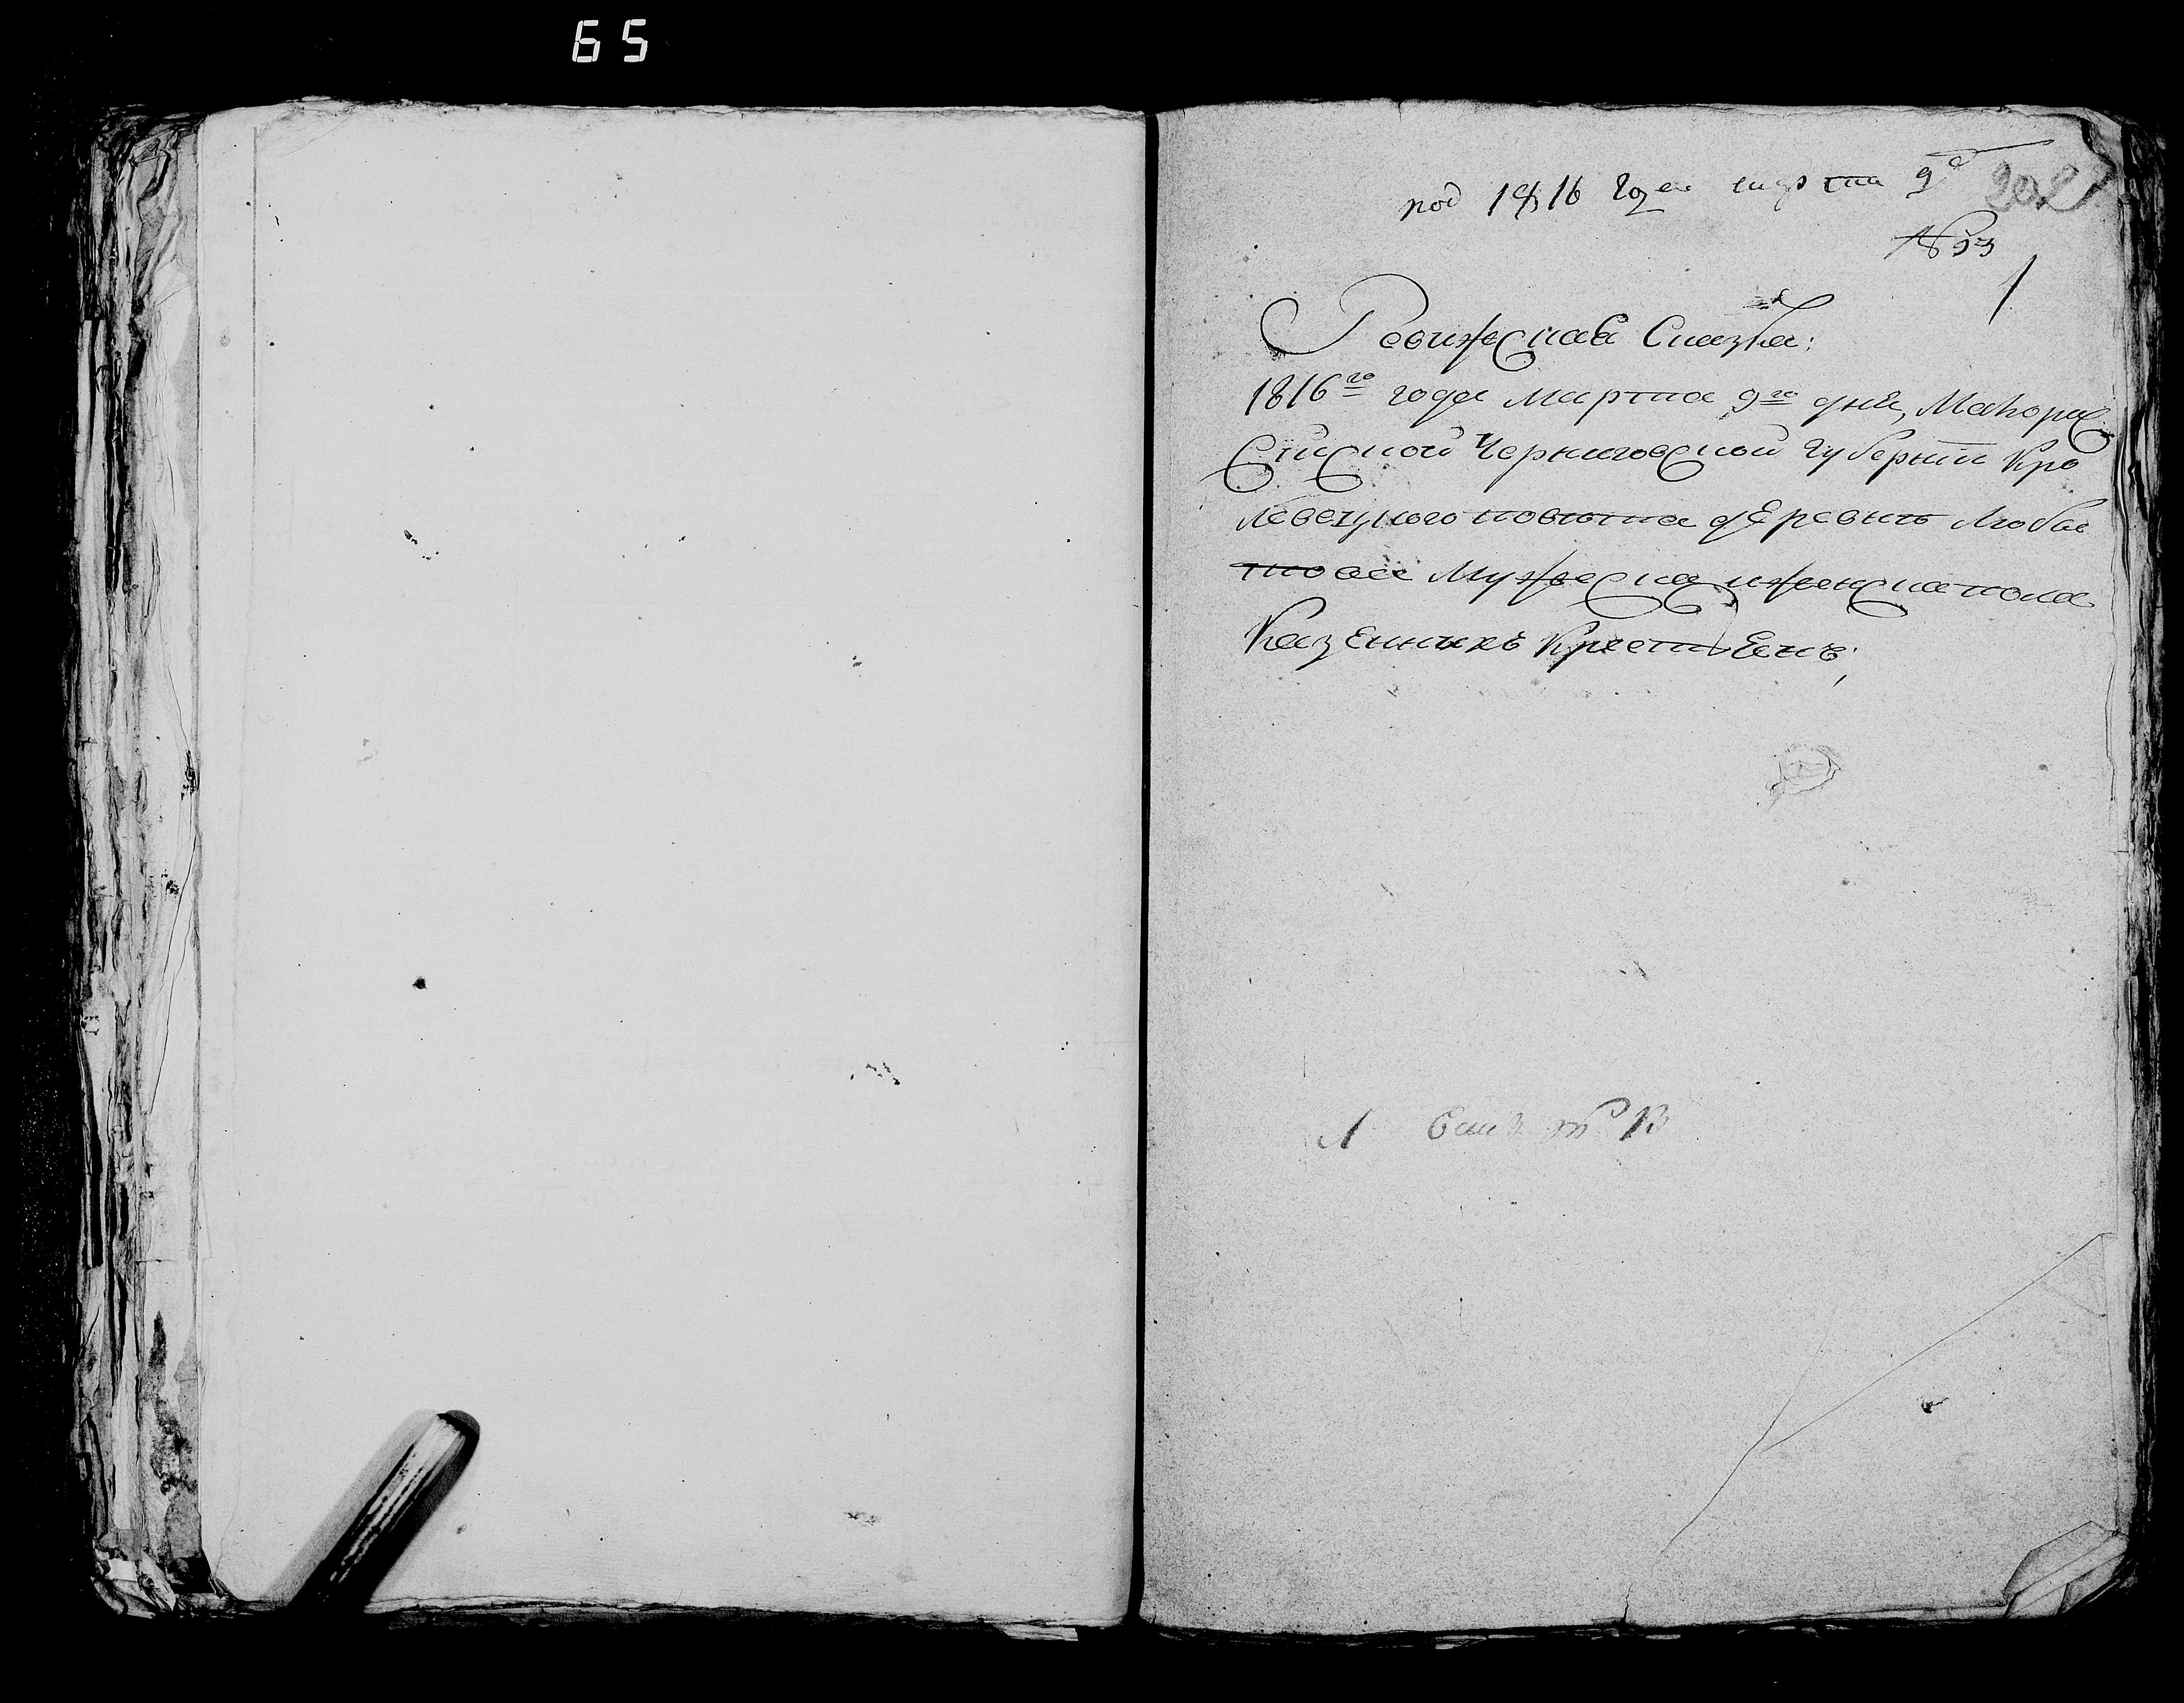 65
под 1816 года марта 9е
№ 33
1
Ревижская Сказка:
1816го года Марта 9го дня, Малорос
Сійской Черниговской Губерніи Кро
левецкого повѣта дЕревнѣ Любы
това Мужеска иженска пола
КазЕнныхъ КрестьЕнъ;